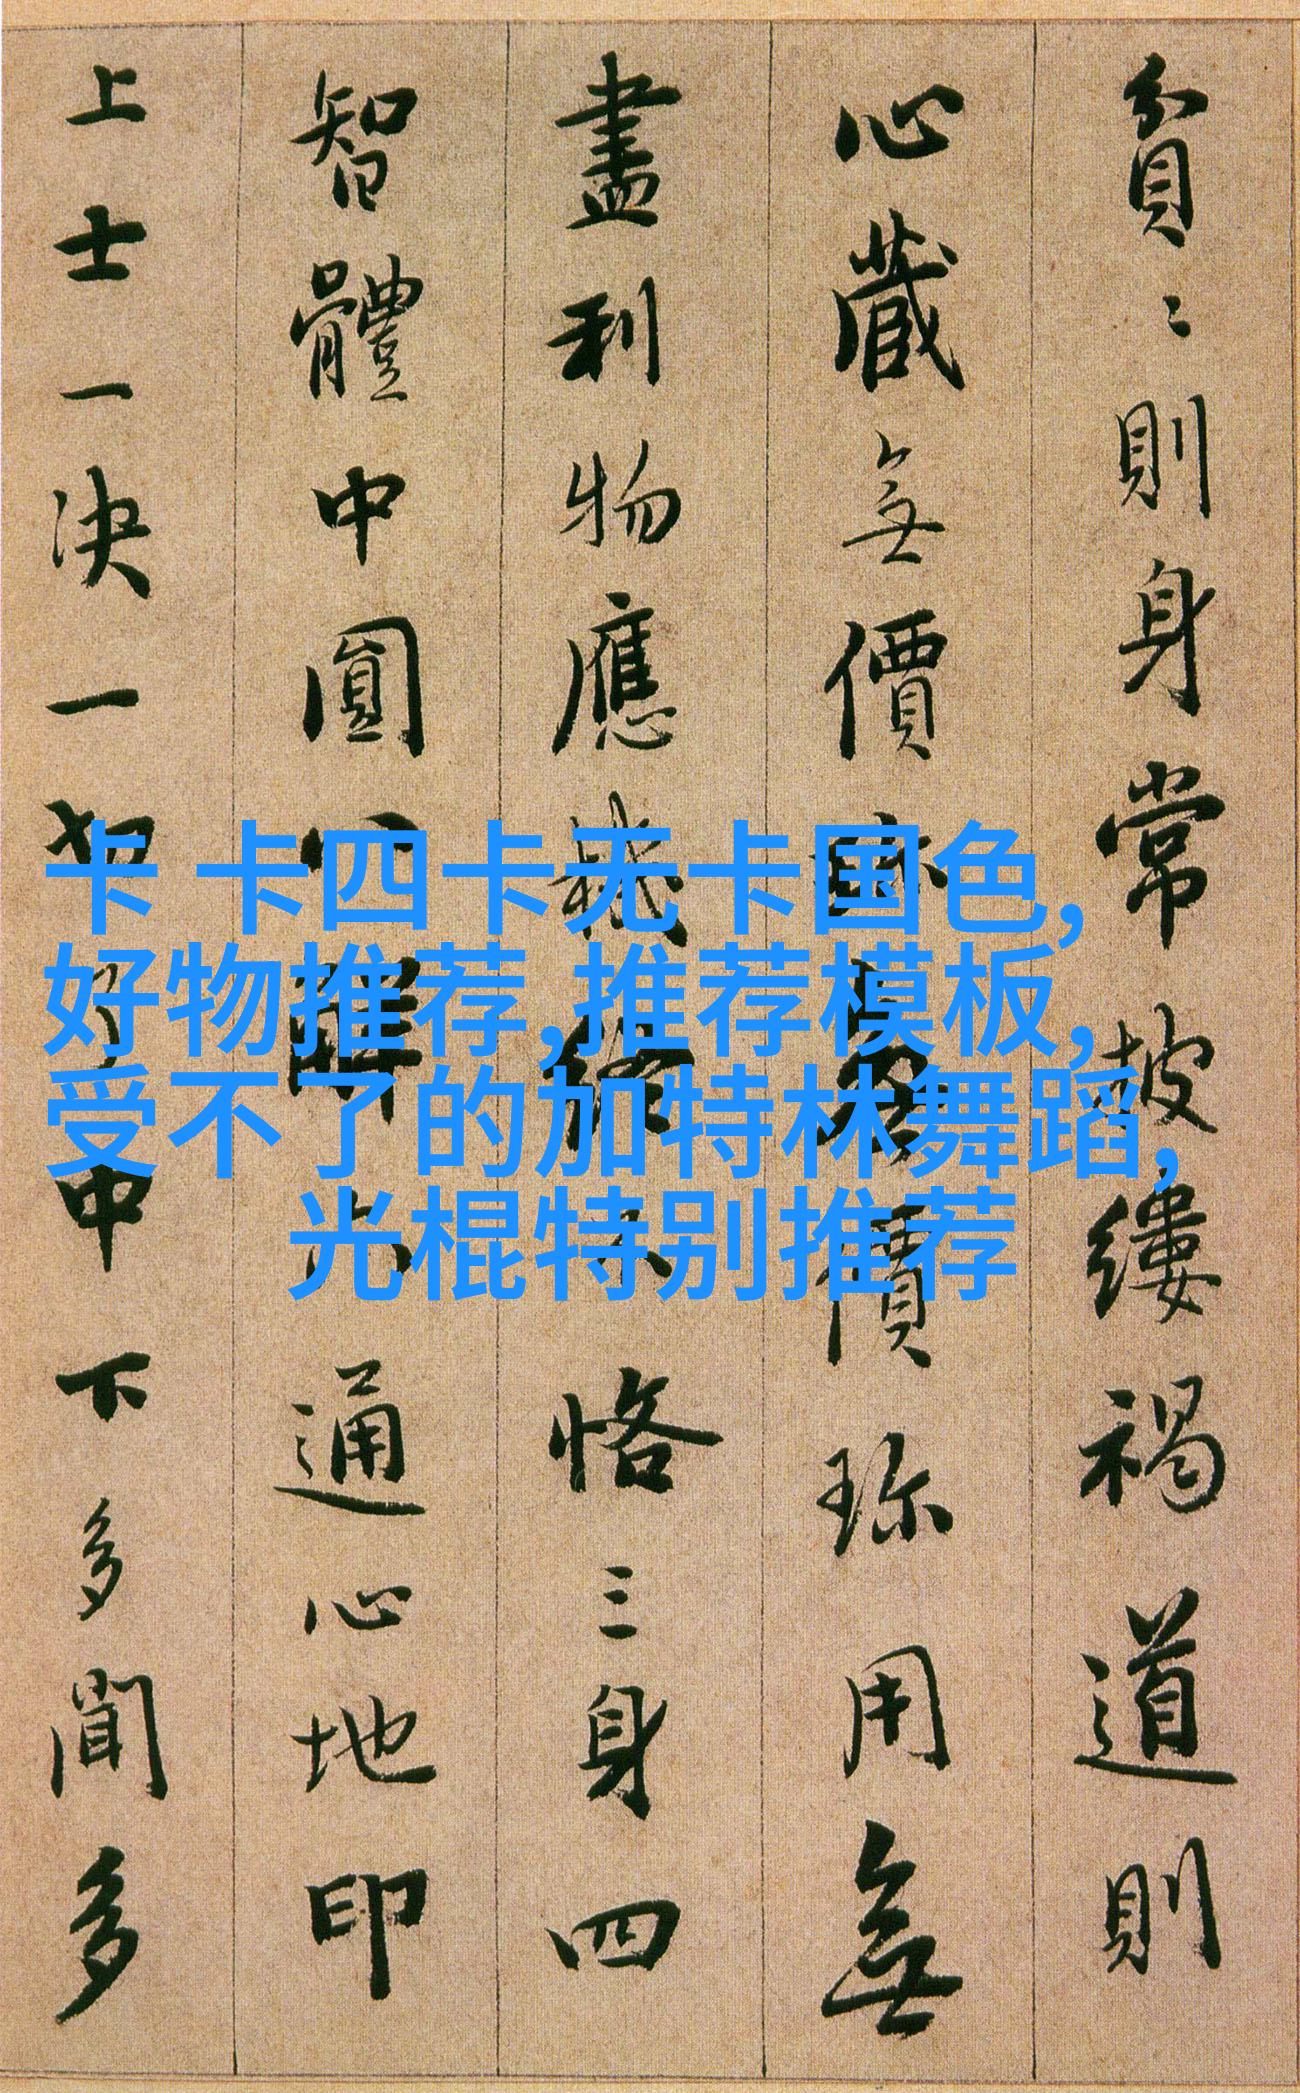 貧〻則身常披縷褐道則
心藏無價價珎用無
盡利物應機終不恪三身四
智體中圓八解六通心地印
上士一決一切中下多聞多
卡 卡四卡无卡国色,
好物推荐,推荐模板,
受不了的加特林舞蹈,
光棍特别推荐